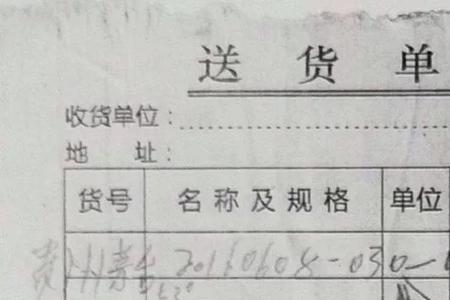 送货单
收货单位:
地 址:
货号 名称及规格 单位
贵州 20160608-030-